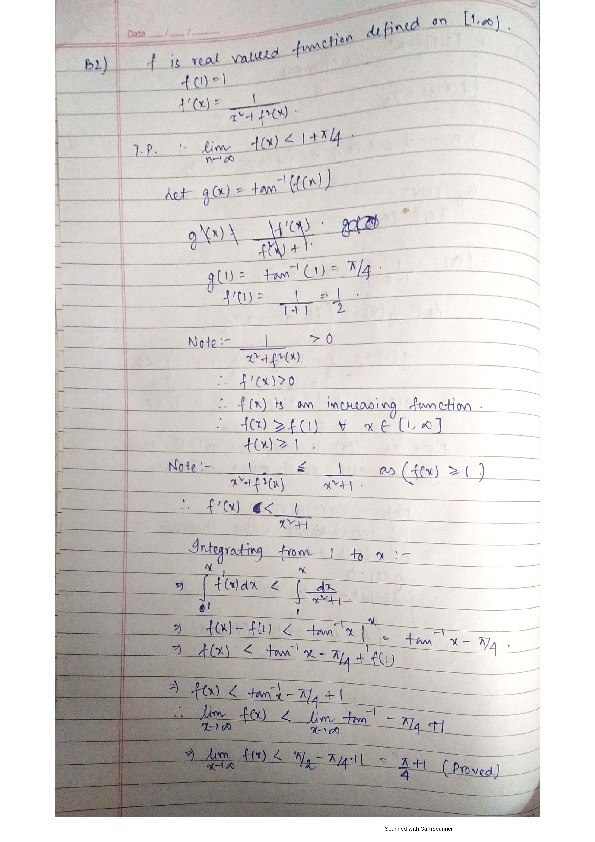 Date ___/___/______
B2) f is real valued function defined on [1,∞).
f(1)=1
f'(x) = 1/(x²+f²(x)).
T.P. :- lim n→∞ f(x) < 1+π/4.
Let g(x) = tan⁻¹(f(x))
g'(x) f'(x)/(f²(x)+1).
g(1) = tan⁻¹(1) = π/4.
f'(1) = 1/(1+1) = 1/2.
Note:- 1/(x²+f²(x)) > 0
∴ f'(x)>0
∴ f(x) is an increasing function.
∴ f(x) ≥ f(1) ∀ x ∈ [1,∞]
f(x) ≥ 1.
Note:- 1/(x²+f²(x)) ≤ 1/(x²+1). as (f(x) ≥ 1)
∴ f'(x) < 1/(x²+1)
Integrating from 1 to x :-
⇒ ∫₁ˣ f'(x)dx < ∫₁ˣ dx/(x²+1)
⇒ f(x) - f(1) < tan⁻¹x |ˣ = tan⁻¹x - π/4.
⇒ f(x) < tan⁻¹x - π/4 + f(1)
⇒ f(x) < tan⁻¹x - π/4 + 1
∴ lim x→∞ f(x) < lim x→∞ tan⁻¹ - π/4 + 1
⇒ lim x→∞ f(x) < π/2 - π/4 + 1 = π/4 + 1 (Proved)
Scanned with CamScanner